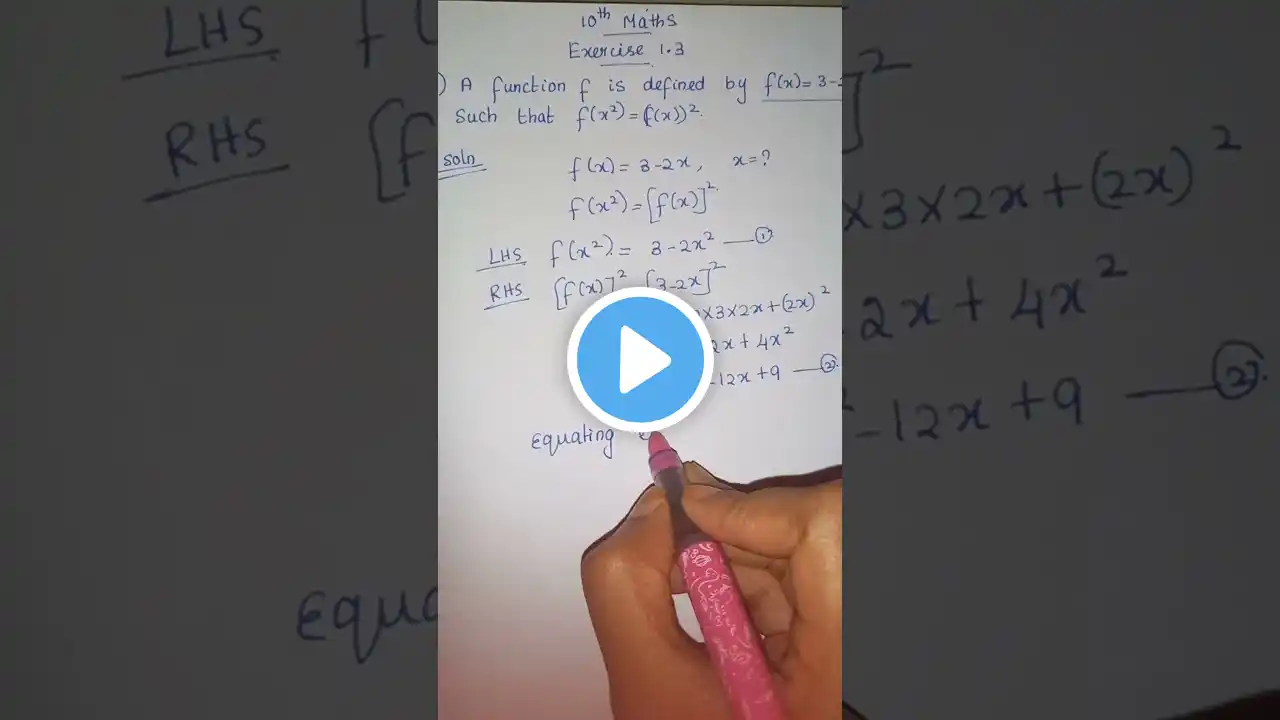 10th Maths
Exercise 1.3
) A function f is defined by f(x)= 3-
Such that f(x²)=(f(x))².
Soln
f(x) = 3-2x, x=?
f(x²) = [f(x)]².
LHS f(x²) = 3-2x² — ①
RHS [f(x)]² [3-2x]²
×3×2x+(2x)²
2x + 4x²
-12x+9 — ②.
Equating